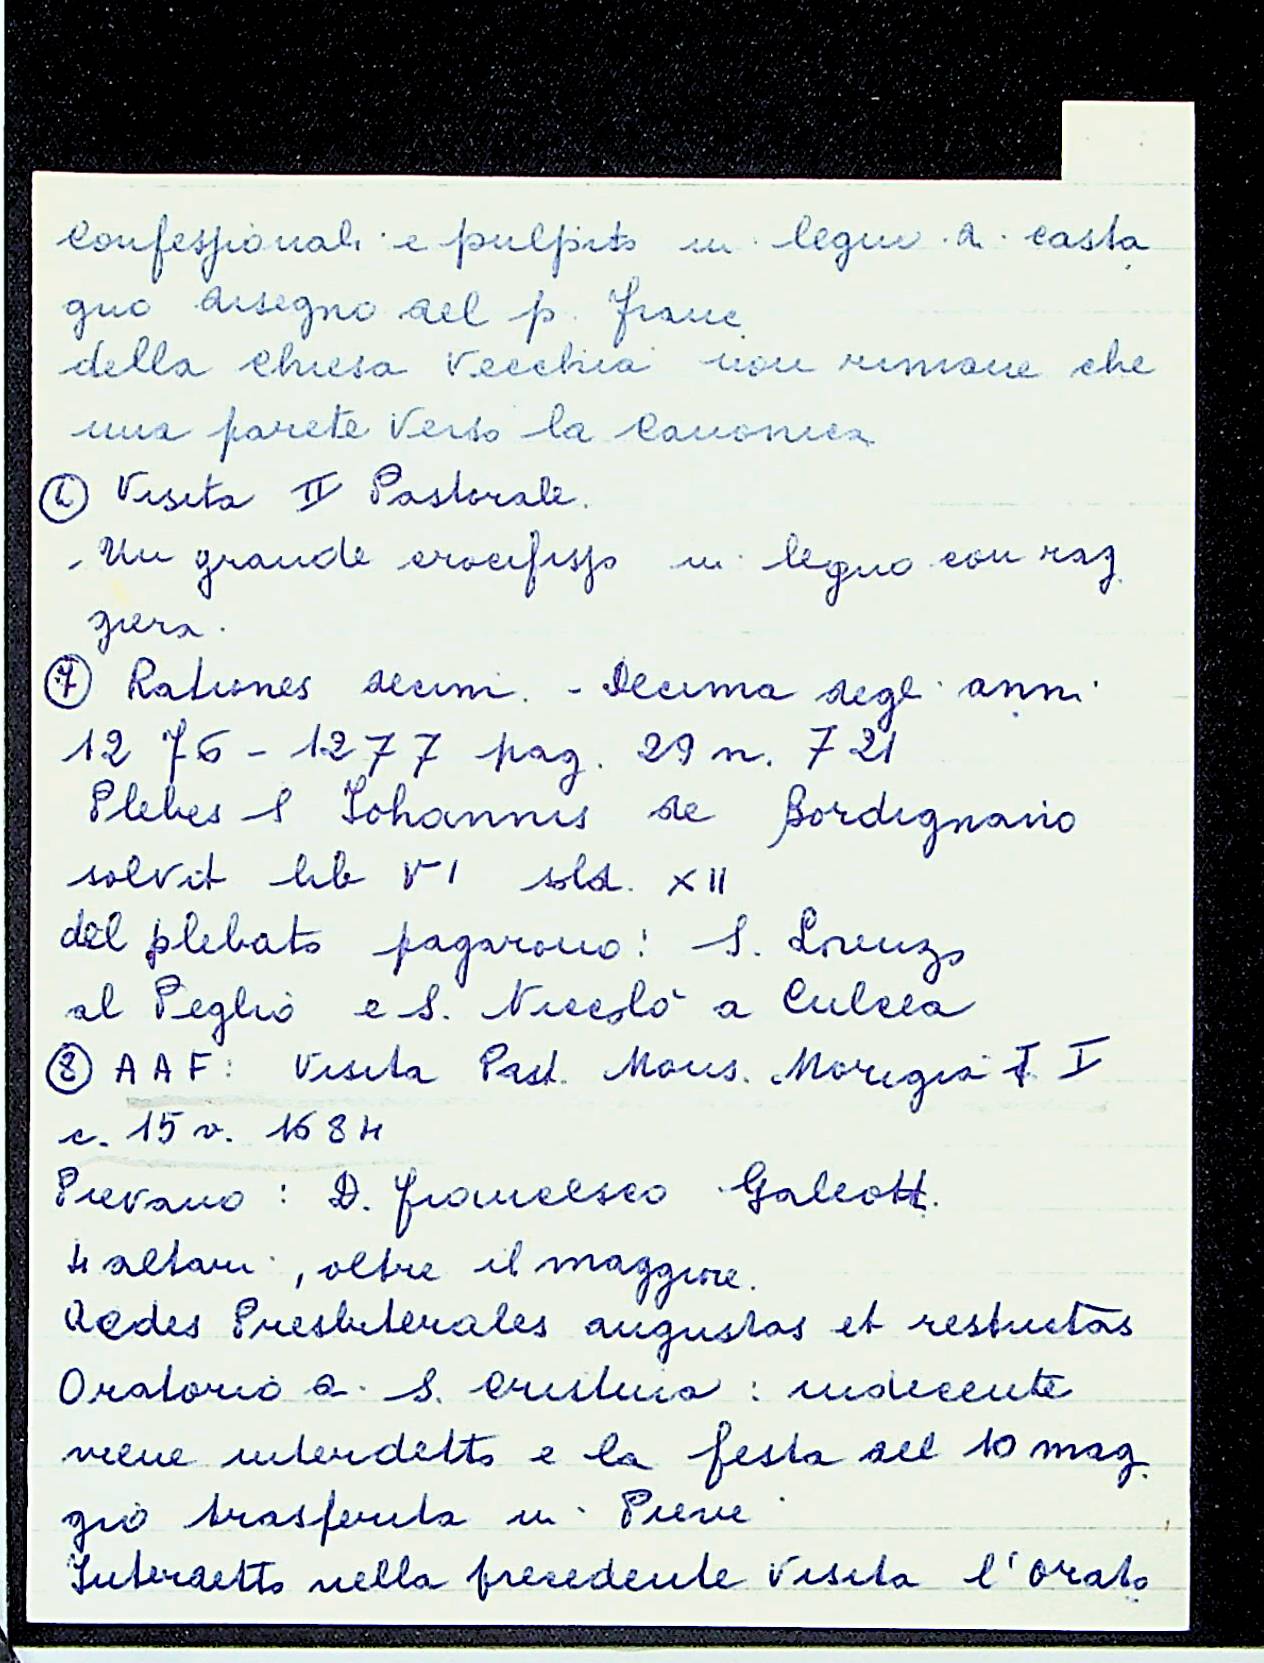 Confessionali e pulpito in legno di casta
gno disegno del p. Franc
della Chiesa Vecchia non rimane che
una parete verso la Canonica
Visita II Pastorale.
- Un grande crocifisso in legno con rag
giera.
⑦ Rationes decim. - Decima degli anni
1276 - 1277 pag. 29 n. 721
Plebes S Iohannis de Bordignano
solvit lib VI sold. XII
del plebato pagarono: S. Lorenzo
al Peglio e S. Niccolò a Culcea
⑧ AAF: Visita Past. Mons. Morigia I
c. 15 v. 1684
Pievano: D. Francesco Galeotti.
4 altari, oltre il maggiore.
Aedes Presbiterales angustas et restrictas
Oratorio di S. Cristina: indecente
viene interdetto e la festa del 10 mag
gio trasferita in Pieve
Interdetto nella precedente Visita l'Orato